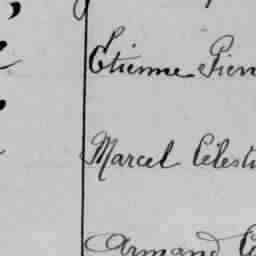 Etienne Pierr
Marcel Célesti
Armand C